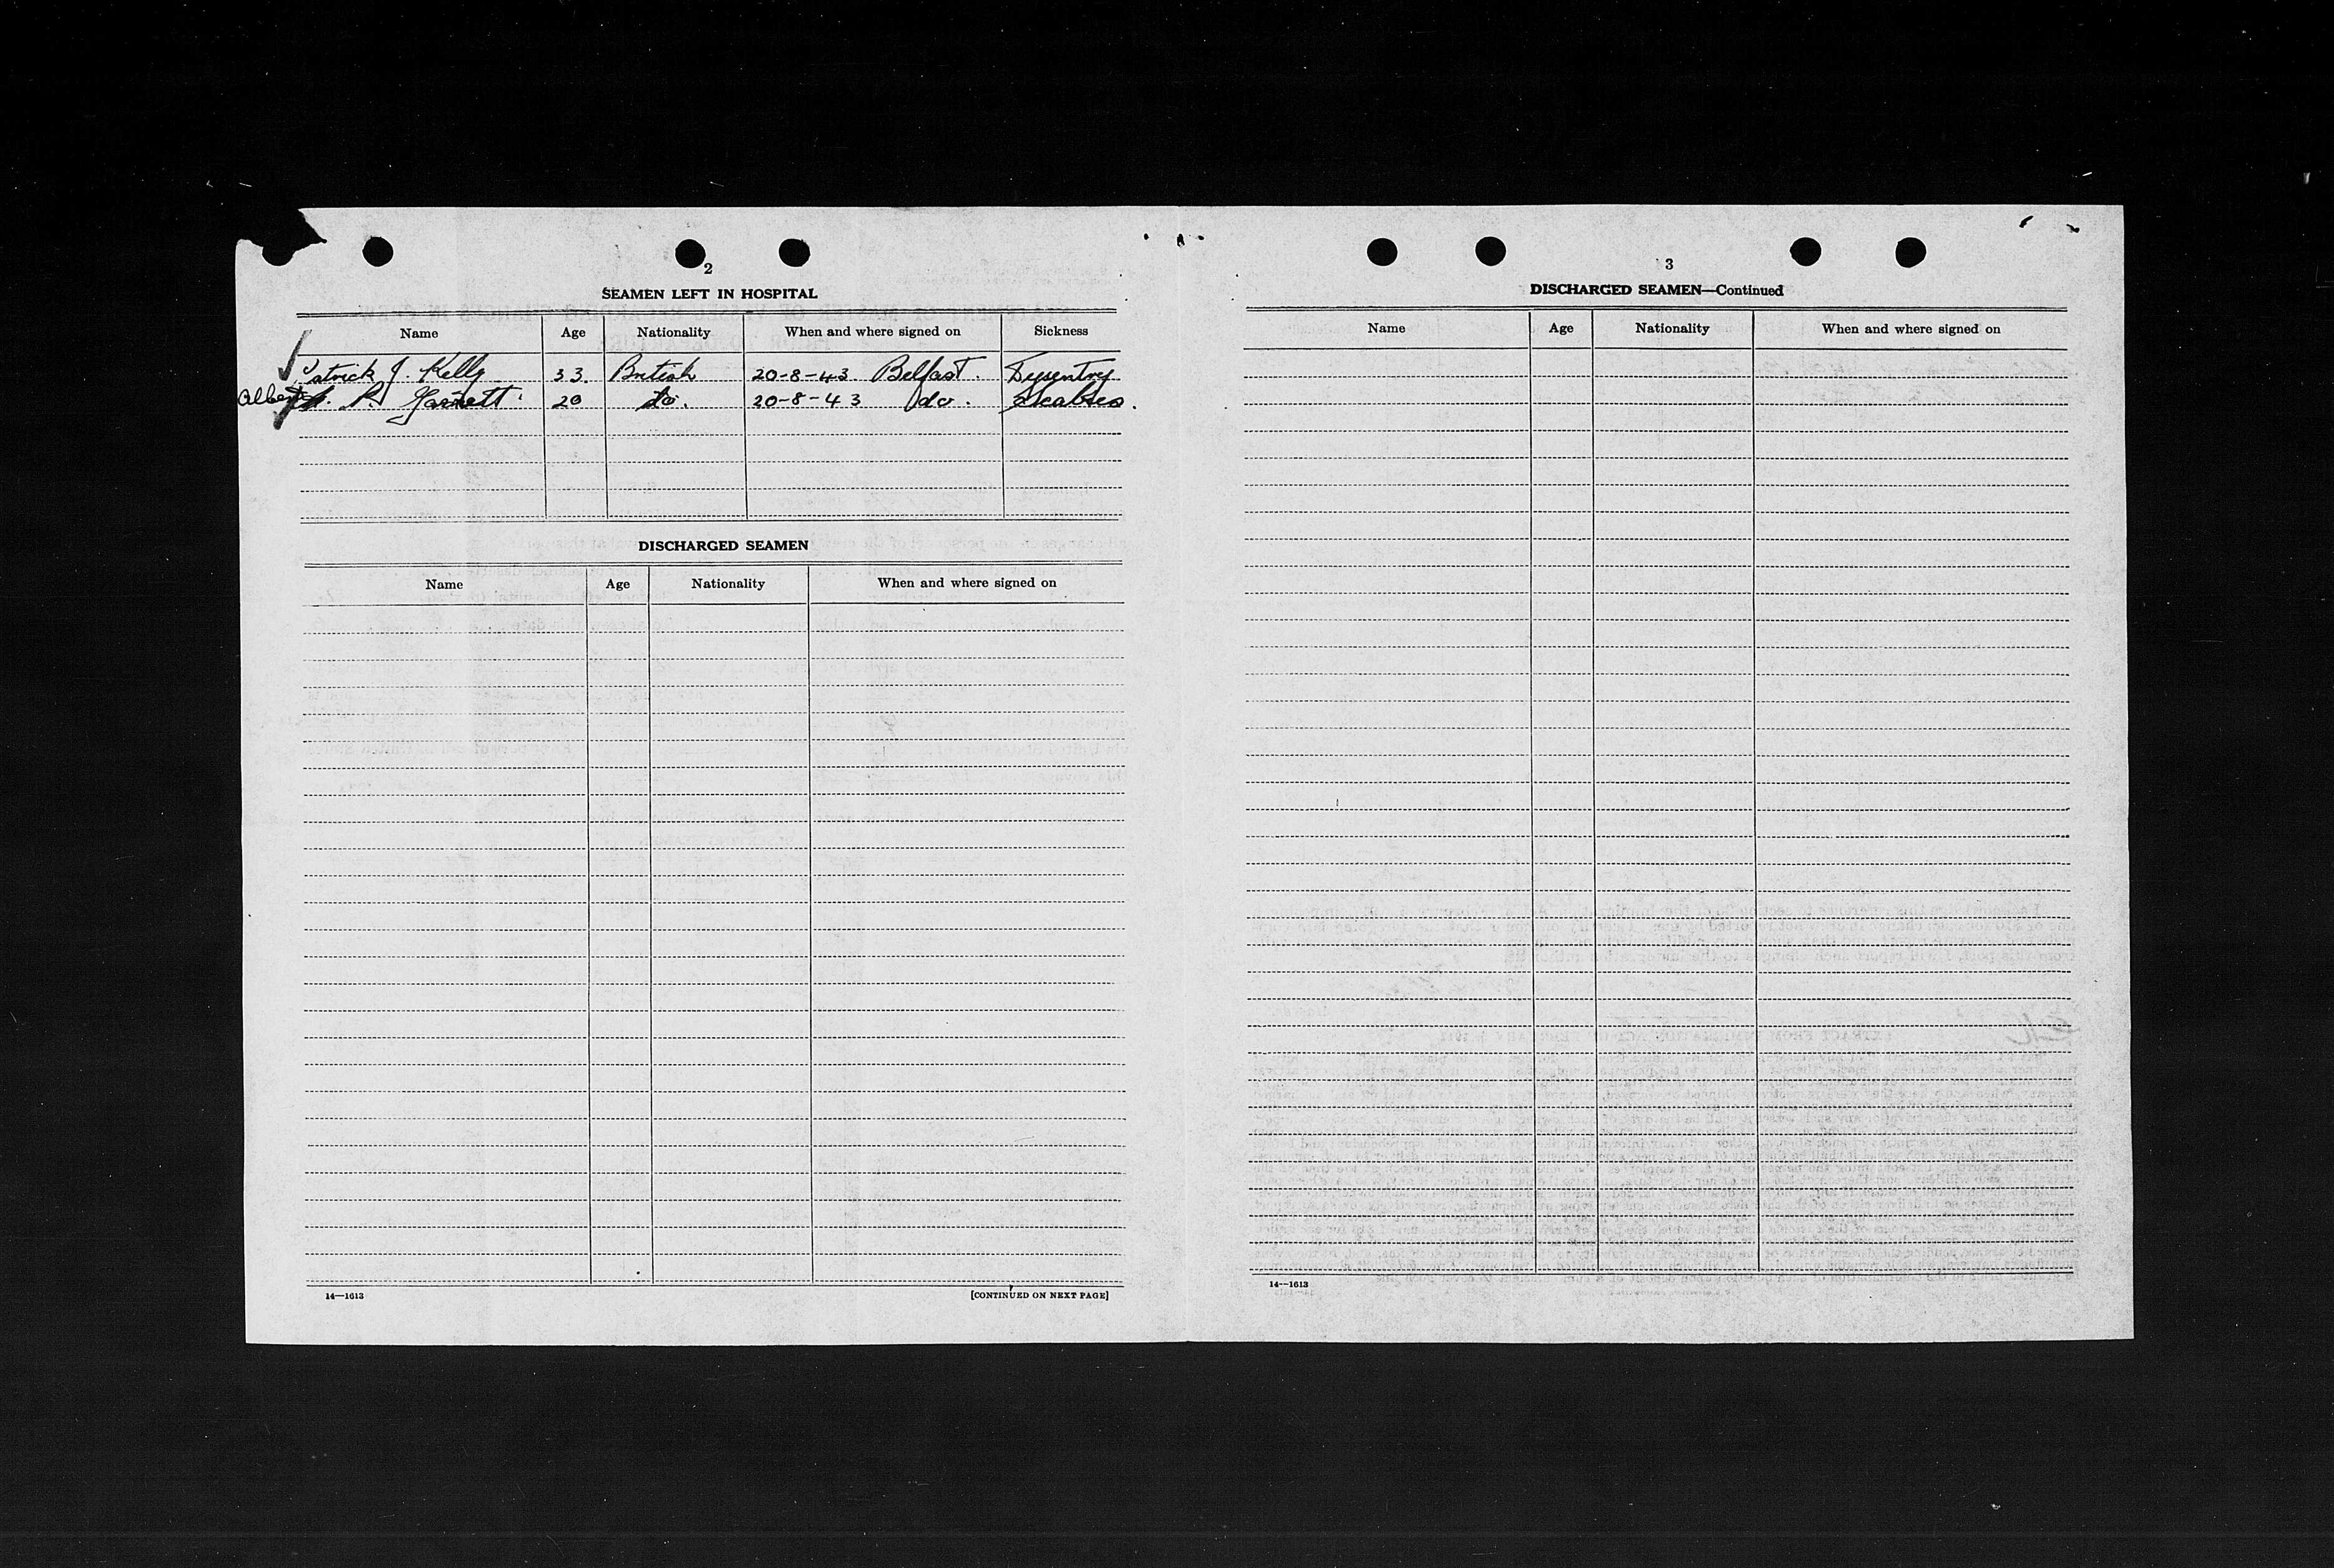 2
SEAMEN LEFT IN HOSPITAL
Name Age Nationality When and where signed on Sickness
Patrick J. Kelly 33. British 20-8-43 Belfast. Dysentry
Albert A. P. Garnett. 20 do. 20-8-43 do. Scabies.
DISCHARGED SEAMEN
Name Age Nationality When and where signed on
14—1613 [CONTINUED ON NEXT PAGE]
3
DISCHARGED SEAMEN—Continued
Name Age Nationality When and where signed on
14—1613